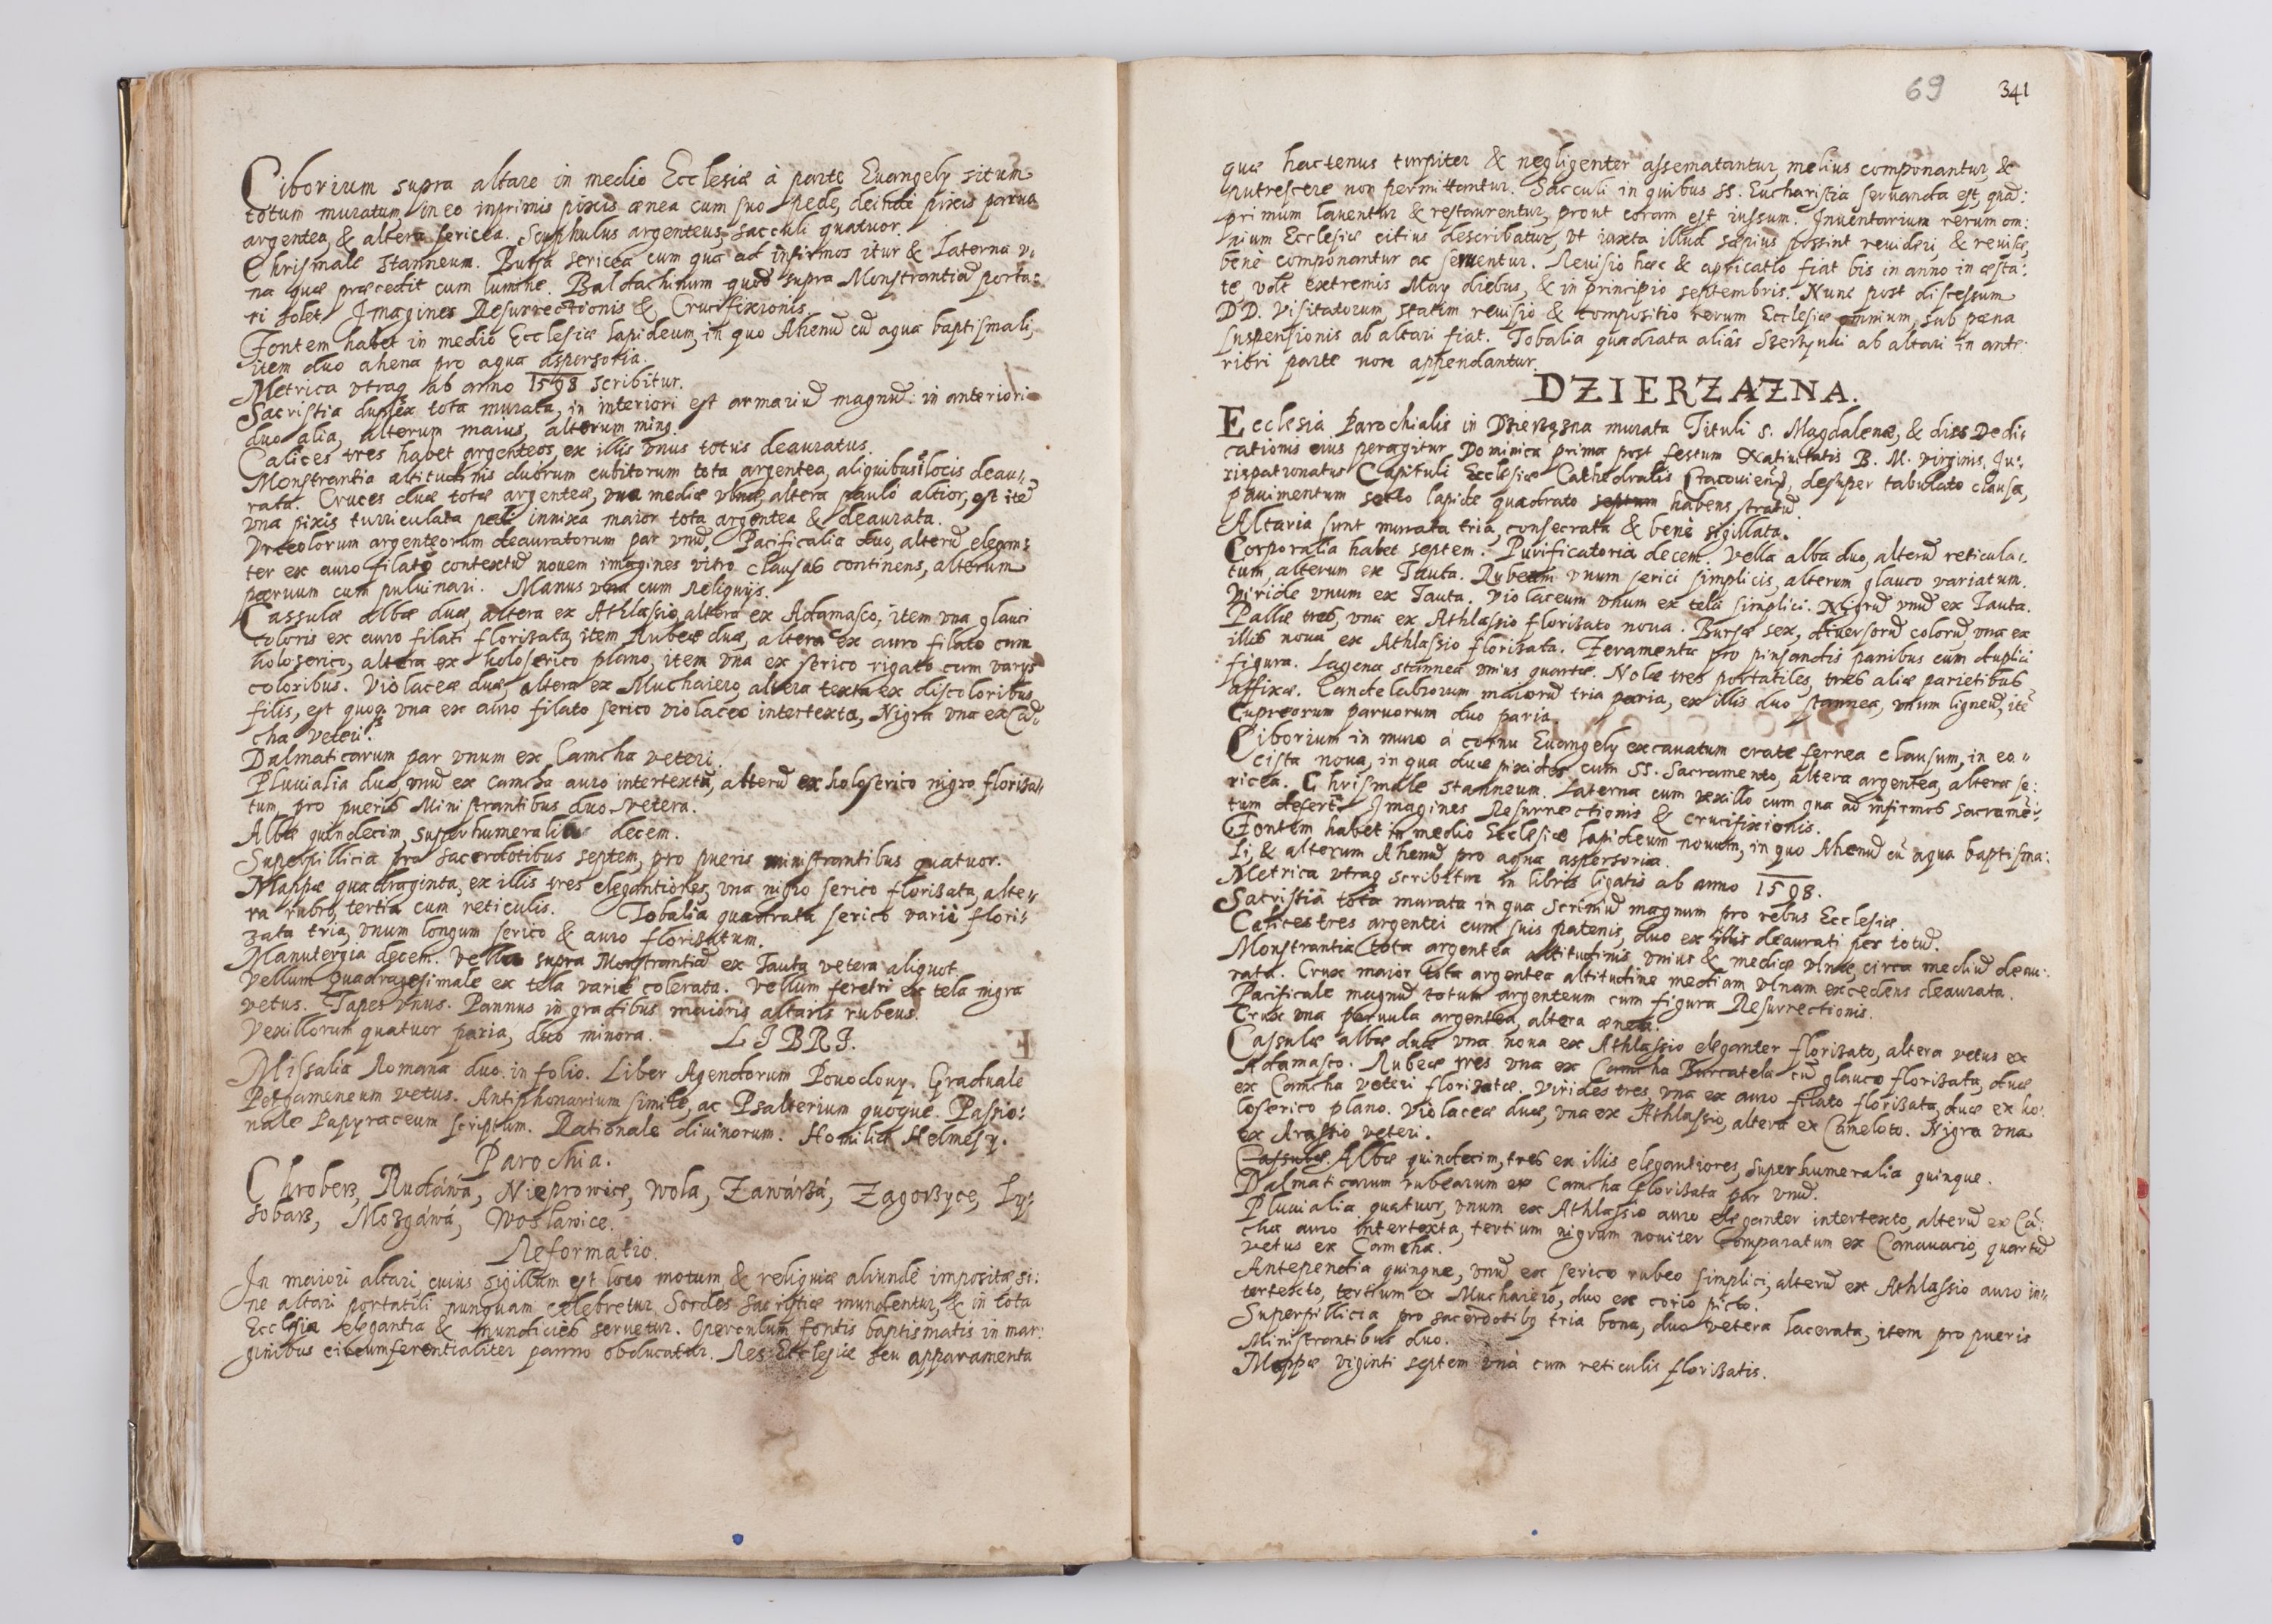 Ciborium supra altare in medio Ecclesiæ à parte Euangely situm
totum muratum, in eo inprimis pixis ænea cum suo pede, deinde pixis parua
argentea, & altera sericea. Scuphulus argenteus, sacculi quatuor.
Chrismale stanneum. Bursa sericea cum qua ad infirmos itur & Laterna v-
na quæ præcedit cum lumine. Baldachinum quod supra Monstrantiã porta:
ri solet. Imagines Resurrectionis & Crucifixionis.
Fontem habet in medio Ecclesiæ lapideum, in quo Ahenũ cũ aqua baptismali,
item duo ahena pro aqua aspersoria.
Metrica vtraq ab anno 1598 scribitur.
Sacristia duplex tota murata, in interiori est armariũ magnũ: in anteriori
duo alia, alterum maius, alterum minq.
Calices tres habet argenteos, ex illis vnus totus deauratus.
Monstrantia altitudinis duorum cubitorum tota argentea, aliquibus locis deau:
rata. Cruces duæ totæ argenteæ, vna mediæ vlnæ, altera pauló altior, est itẽ
vna pixis turriculata pedi innixa maior tota argentea & deaurata.
Vrceolorum argenteorum deauratorum par vnũ. Pacificalia duo, alterũ elegan:
ter ex auro filato contextũ nouem imagines vitro clausas continens, alterum
paruum cum puluinari. Manus vna cum Reliquijs.
Cassulæ albæ duæ, altera ex Athlassio, altera ex Adamasco, item vna glauci
coloris ex auro filati florisata, item Rubeæ duæ, altera ex auro filato cum
holoserico, altera ex holoserico plano, item vna ex serico rigato cum varys
coloribus. Violaceæ duæ, altera ex Muchaiero, altera texta ex discoloribus
filis, est quoq vna ex auro filato serico violaceo intertexta, Nigra vna ex Cã-
cha veteri.
Dalmaticarum par vnum ex Camcha veteri.
Pluuialia duo, vnũ ex camcha auro intertextũ, alterũ ex holoserico nigro florisa:
tum, pro pueris Ministrantibus duo vetera.
Albæ quindecim, superhumeralia decem.
Superpillicia pro sacerdotibus septem, pro pueris ministrantibus quatuor.
Mappæ quadraginta, ex illis tres elegantiores, vna nigro serico florisata, alte:
ra rubro, tertia cum reticulis. Tobalia quadrata serico varii flori:
zata tria, vnum longum serico & auro florisatum.
Manutergia decem. Vella supra Monstrantiã ex Tauta vetera aliquot.
Vellum Quadragesimale ex tela varie colerata. Vellum feretri ex tela nigra
vetus. Tapes vnus. Pannus in gradibus maioris altaris rubeus.
Vexillorum quatuor paria, duo minora. LIBRI.
Missalia Romana duo in folio. Liber Agendorum Powodowy. Graduale
Pergameneum vetus. Antiphonarium simile, ac Psalterium quoque. Passio:
nale Papyraceum scriptum. Rationale diuinorum. Homiliæ Helmesy.
Parochia.
Chroberz, Rudáwá, Nieprowice, Wola, Zawárzá, Zagorzyce, Ly:
sobarz, Mozgáwá, Woslawice.
Reformatio.
In maiori altari cuius sigillum est loco motum & reliquiæ aliunde impositæ si:
ne altari portatili nunquam celebretur. Sordes sacristiæ mundentur, & in tota
Ecclesia elegantia & mundicies seruetur. Operculum fontis baptismatis in mar:
ginibus circumferentialiter panno obducatur. Res Ecclesiæ seu apparamenta
69 341
quæ hactenus turpiter & negligenter assematantur, melius componantur, &
putrescere non permittantur. Sacculi in quibus SS. Eucharistia seruanda est, quã:
primum lauentur & restaurentur, prout coram est iussum. Inuentarium rerum om:
nium Ecclesiæ citius describatur, vt iuxta illud sæpius possint reuideri, & reuisæ
bene componantur ac seruentur. Reuisio hæc & apricatio fiat bis in anno in æsta:
te, volt extremis May diebus, & in principio septembris. Nunc post discessum
DD. Visitatorum, statim reuisio & compositio rerum Ecclesiæ omnium, sub pæna
suspensionis ab altari fiat. Tobalia quadrata aliàs Szerzynki ab altari in ante:
riori parte non appendantur.
DZIERZAZNA.
Ecclesia Parochialis in Dzierzązna murata Tituli S. Magdalenæ, & dies Dedi:
cationis eius peragitur Dominica prima post festum Natiuitatis B. M. Virginis, Ju:
rispatronatus Capituli Ecclesiæ Cathedralis Cracouieñ, desuper tabulato clausa,
pauimentum secto lapide quadrato septum habens stratũ.
Altaria sunt murata tria, consecrata & bene sigillata.
Corporalia habet septem. Purificatoria decem. Vella alba duo, alterũ reticula:
tum, alterum ex Tauta. Rubeum vnum serici simplicis, alterum glauco variatum.
Viride vnum ex Tauta. Violaceum vnum ex tela simplici. Nigrũ vnũ ex Tauta.
Pallæ tres, vna ex Athlassio florisato noua. Bursæ sex, diuersorũ colorũ, vna ex
illis noua ex Athlassio florisata. Feramenta pro pinsandis panibus cum duplici
figura. Lagena stannea vnius quartæ. Nolæ tres portatiles, tres aliæ parietibus
affixæ. Candelabrorum maiorũ tria paria, ex illis duo stannea, vnum ligneũ, itẽ
Cupreorum paruorum duo paria.
Ciborium in muro à cornu Euangely excauatum crate ferrea clausum, in eo
cista noua, in qua duæ pixides cum SS. Sacramento, altera argentea, altera se:
ricea. Chrismale stanneum. Laterna cum vexillo cum qua ad infirmos sacramẽ:
tum defert. Imagines Resurrectionis & crucifixionis.
Fontem habet in medio Ecclesiæ lapideum nouum, in quo Ahenũ cũ aqua baptisma:
li, & alterum Ahenũ pro aqua aspersoria.
Metrica vtraq scribitur in libris ligatis ab anno 1598.
Sacristia tota murata in qua scriniũ magnum pro rebus Ecclesiæ.
Calices tres argentei cum suis patenis, duo ex illis deaurati per totũ.
Monstrantia tota argentea altitudinis vnius & mediæ vlnæ, circa mediũ deau:
rata. Crux maior tota argentea altitudine mediam vlnam excedens deaurata.
Pacificale magnũ totum argenteum cum figura Resurrectionis.
Crux vna paruula argentea, altera ænea.
Cassulæ albæ duæ vna noua ex Athlassio eleganter florisato, altera vetus ex
Adamasco. Rubeæ tres vna ex Camcha Burcatela cũ glauco florisata, duæ
ex Camcha veteri florisatæ. Virides tres, vna ex auro filato florisata, duæ ex ho:
loserico plano. Violaceæ duæ, vna ex Athlassio, altera ex Cameloto. Nigra vna
ex Arassio veteri.
Cassulæ. Albæ quindecim, tres ex illis elegantiores, superhumeralia quinque.
Dalmaticarum rubearum ex Camcha florisata par vnũ.
Pluuialia quatuor, vnum ex Athlassio auro eleganter intertexto, alterũ ex Cã:
cha auro intertexta, tertium nigrum nouiter comparatum ex Canauacio, quartũ
vetus ex Camcha.
Antependia quinque, vnũ ex serico rubeo simplici, alterũ ex Athlassio auro in:
tertexto, tertium ex Muchaiero, duo ex corio picto.
Superpillicia pro sacerdotibq tria bona, duo vetera lacerata, item pro pueris
Ministrantibus duo.
Mappæ viginti septem vnà cum reticulis florisatis.